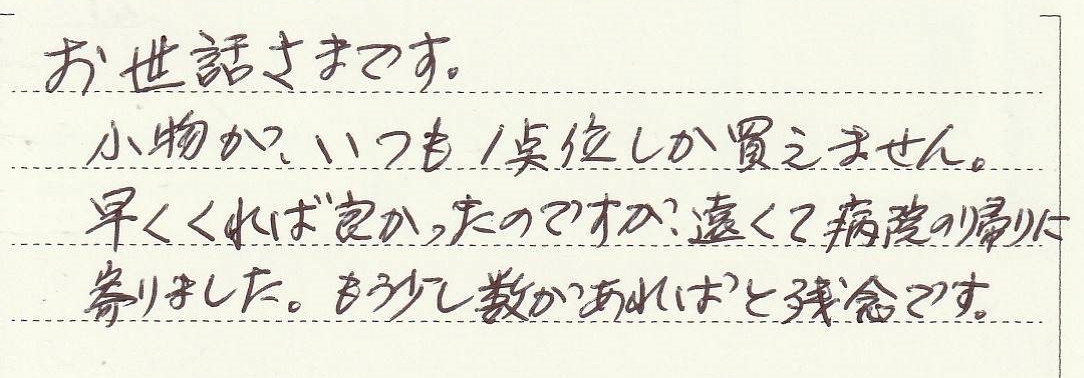 お世話さまです。
小物が、いつも1点位しか買えません。
早くくれば良かったのですが、遠くて病院の帰りに
寄りました。もう少し数があればと残念です。